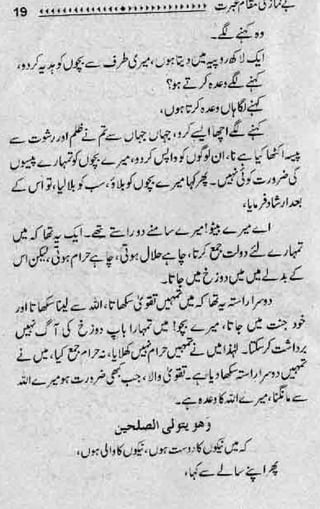 بے نمازی کا مقام عبرت 19
وہ کہنے لگے۔
ایک لاکھ روپیہ میں دیتا ہوں، میری طرف سے بچوں کو ہدیہ کر دو،
کہنے لگے وعدہ کرتے ہو؟
کہنے لگا ہاں وعدہ کرتا ہوں،
کہنے لگے اچھا ایسے کرو، جہاں جہاں سے تم نے ظلم اور رشوت سے
پیسہ اکٹھا کیا ہے نا، ان لوگوں کو واپس کر دو، میرے بچوں کو تمہارے پیسوں
کی ضرورت کوئی نہیں۔ پھر کہا میرے بچوں کو بلاؤ، سب کو بلا لیا، تو اس کے
بعد ارشاد فرمایا،
اے میرے بیٹو! میرے سامنے دو راستے تھے۔ ایک یہ تھا کہ میں
تمہارے لئے دولت جمع کرتا، چاہے حلال ہوتی، چاہے حرام ہوتی، لیکن اس
کے بدلے میں میں دوزخ میں جاتا۔
دوسرا راستہ یہ تھا کہ میں تمہیں تقویٰ سکھاتا، اللہ سے لینا سکھاتا اور
خود جنت میں جاتا، میرے بچو! میں تمہارا باپ دوزخ کی آگ نہیں
برداشت کر سکتا۔ لہٰذا میں نے تمہیں حرام نہیں کھلایا، نہ حرام جمع کیا، میں نے
تمہیں دوسرا راستہ سکھا دیا ہے۔ تقویٰ والا، جب بھی ضرورت ہو میرے اللہ
سے مانگنا، میرے اللہ کا وعدہ ہے۔
وھو یتولی الصلحین
کہ میں نیکوں کا دوست ہوں، نیکوں کا والی ہوں،
پھر اپنے سالے سے کہا،